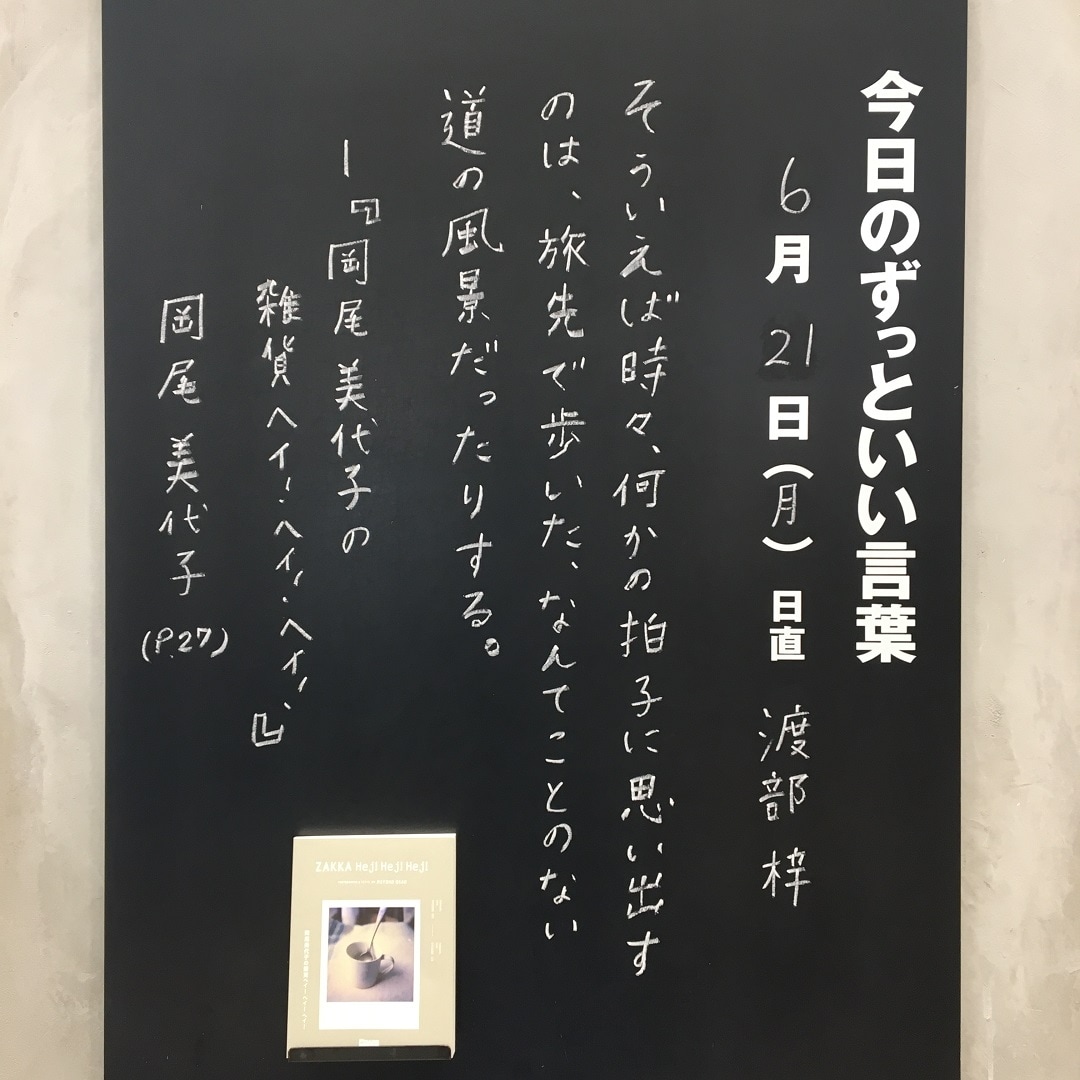 今日のずっといい言葉
6月21日(月) 日直 渡部 梓
そういえば時々、何かの拍子に思い出す
のは、旅先で歩いた、なんてことのない
道の風景だったりする。
―『岡尾美代子の
雑貨ヘイ!・ヘイ!・ヘイ!、』
岡尾 美代子 (P.27)
ZAKKA Hej! Hej! Hej!
岡尾美代子の雑貨ヘイ!ヘイ!ヘイ!